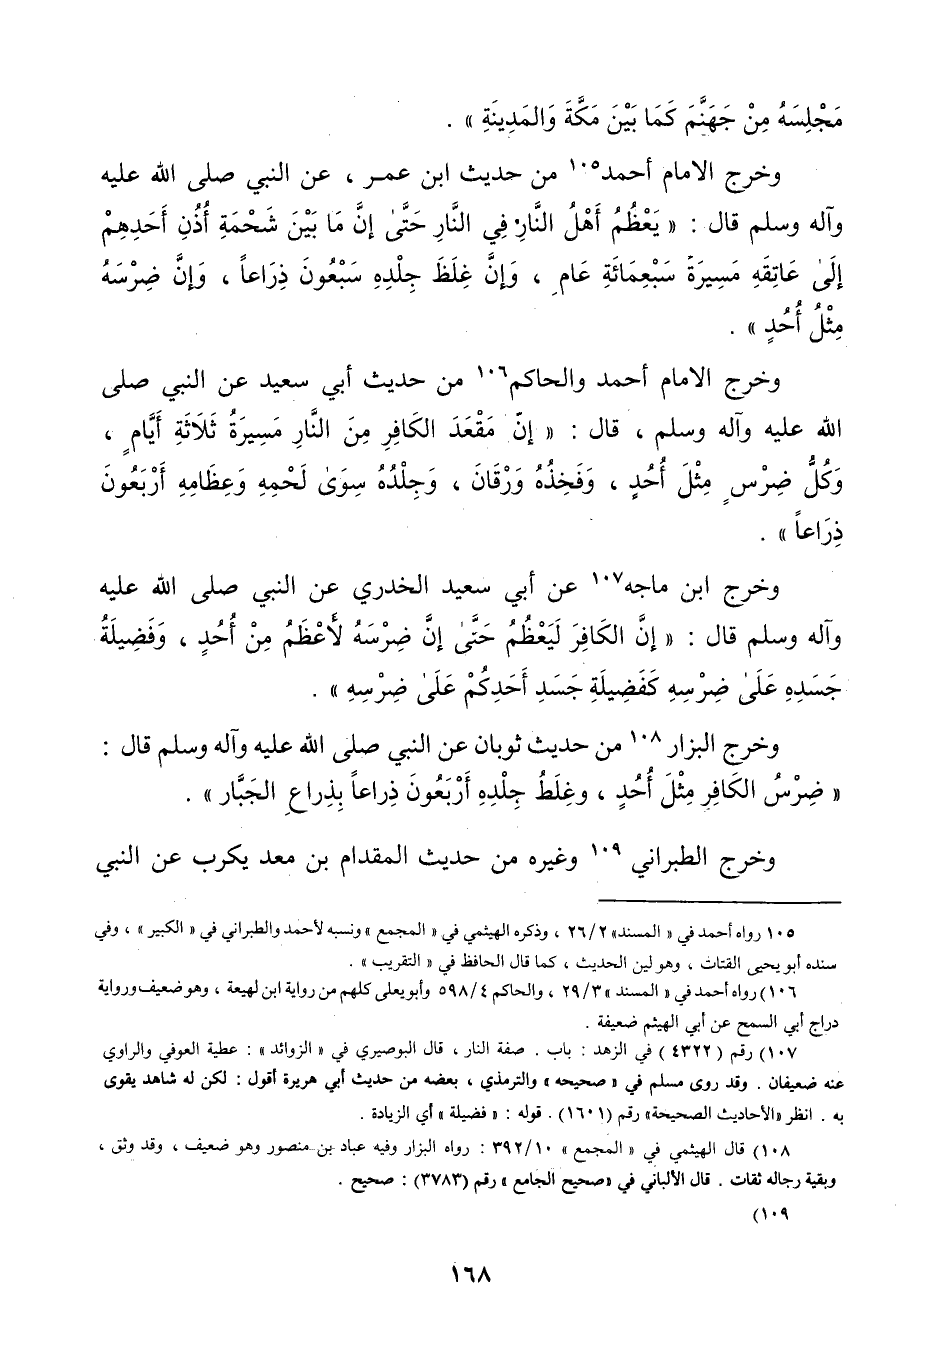 مَجْلِسَهُ مِنْ جَهَنَّمَ كَمَا بَيْنَ مَكَّةَ وَالمَدِينَةِ » .
وخرج الامام أحمد١٠٥ من حديث ابن عمر ، عن النبي صلى الله عليه
وآله وسلم قال : « يَعْظُمُ أَهْلُ النَّارِ فِي النَّارِ حَتَّىٰ إنَّ مَا بَيْنَ شَحْمَةِ أُذُنِ أَحَدِهِمْ
إلَىٰ عَاتِقَهِ مَسِيرَةَ سَبْعِمَائَةِ عَامٍ ، وَإنَّ غِلَظَ جِلْدِهِ سَبْعُونَ ذِرَاعاً ، وَإنَّ ضِرْسَهُ
مِثْلُ أُحُدٍ » .
وخرج الامام أحمد والحاكم١٠٦ من حديث أبي سعيد عن النبي صلى
الله عليه وآله وسلم ، قال : « إنّ مَقْعَدَ الكَافِرِ مِنَ النَّارِ مَسِيرَةُ ثَلَاثَةِ أَيَّامٍ ،
وَكُلُّ ضِرْسٍ مِثْلَ أُحُدٍ ، وَفَخِذُهُ وَرْقَان ، وَجِلْدُهُ سِوَىٰ لَحْمِهِ وَعِظَامِهِ أَرْبَعُونَ
ذِرَاعاً » .
وخرج ابن ماجه١٠٧ عن أبي سعيد الخدري عن النبي صلى الله عليه
وآله وسلم قال : « إنَّ الكَافِرَ لَيَعْظُمُ حَتَّىٰ إنَّ ضِرْسَهُ لأَعْظَمُ مِنْ أُحُدٍ ، وَفَضِيلَةُ
جَسَدِهِ عَلَىٰ ضِرْسِهِ كَفَضِيلَةِ جَسَدِ أَحَدِكُمْ عَلَىٰ ضِرْسِهِ » .
وخرج البزار ١٠٨ من حديث ثوبان عن النبي صلى الله عليه وآله وسلم قال :
« ضِرْسُ الكَافِرِ مِثْلَ أُحُدٍ ، وغِلَطُ جِلْدِهِ أَرْبَعُونَ ذِراعاً بِذِراعِ الجَبَّار » .
وخرج الطبراني ١٠٩ وغيره من حديث المقدام بن معد يكرب عن النبي
١٠٥ رواه أحمد في « المسند» ٢٦/٢ ، وذكره الهيثمي في « المجمع » ونسبه لأحمد والطبراني في « الكبير » ، وفي
سنده أبو يحيى القتات ، وهو لين الحديث ، كما قال الحافظ في « التقريب » .
١٠٦) رواه أحمد في « المسند »٢٩/٣ ، والحاكم ٥٩٨/٤ وأبو يعلى كلهم من رواية ابن لهيعة ، وهو ضعيف ورواية
دراج أبي السمح عن أبي الهيثم ضعيفة .
١٠٧) رقم ( ٤٣٢٢ ) في الزهد : باب . صفة النار ، قال البوصيري في « الزوائد » : عطية العوفي والراوي
عنه ضعيفان . وقد روى مسلم في « صحيحه » والترمذي ، بعضه من حديث أبي هريرة أقول : لكن له شاهد يقوى
به . انظر «الأحاديث الصحيحة» رقم (١٦٠١) . قوله : « فضيلة » أي الزيادة .
١٠٨) قال الهيثمي في « المجمع » ٣٩٢/١٠ : رواه البزار وفيه عباد بن منصور وهو ضعيف ، وقد وثق ،
وبقية رجاله ثقات . قال الألباني في «صحيح الجامع » رقم (٣٧٨٣) : صحيح .
١٠٩)
١٦٨